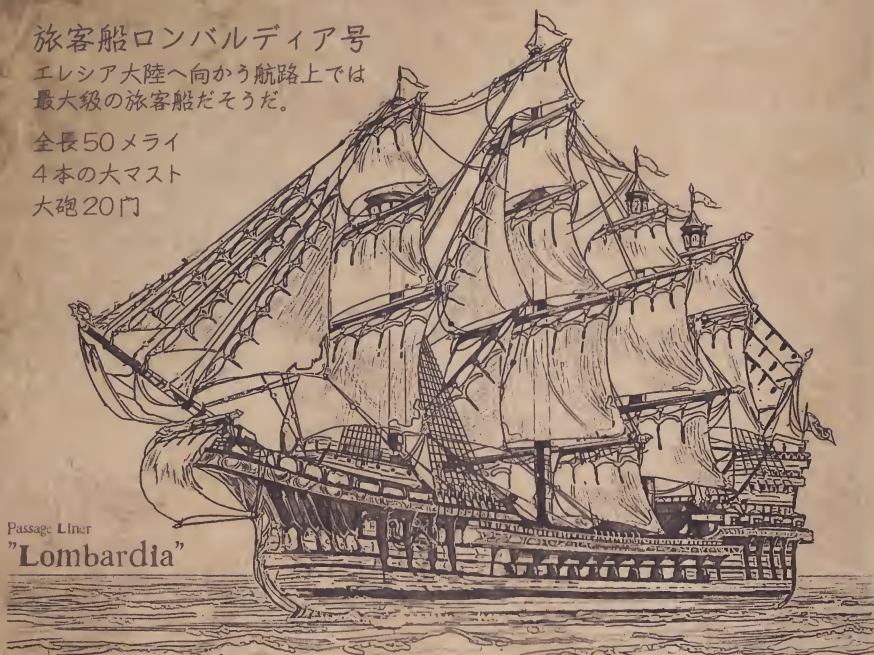 旅客船ロンバルディア号
エレシア大陸へ向かう航路上では
最大級の旅客船だそうだ。
全長50メライ
4本の大マスト
大砲20門
Passage Liner
"Lombardia"